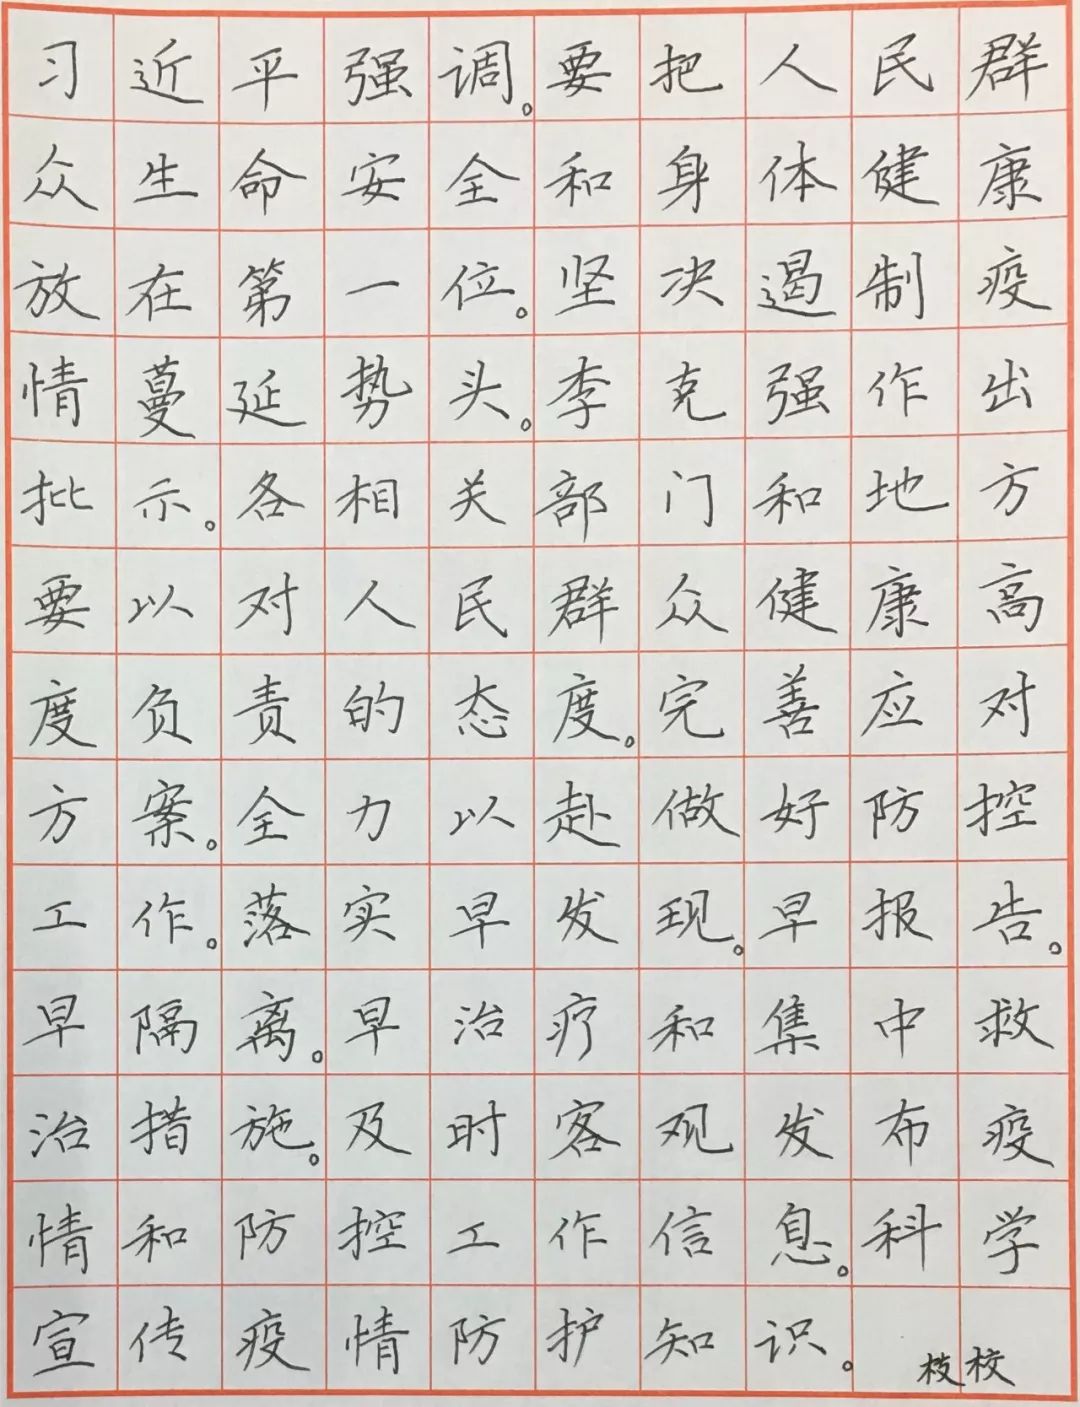 习近平强调。要把人民群
众生命安全和身体健康
放在第一位。坚决遏制疫
情蔓延势头。李克强作出
批示。各相关部门和地方
要以对人民群众健康高
度负责的态度。完善应对
方案。全力以赴做好防控
工作。落实早发现。早报告。
早隔离。早治疗和集中救
治措施。及时客观发布疫
情和防控工作信息。科学
宣传疫情防护知识。
枝校